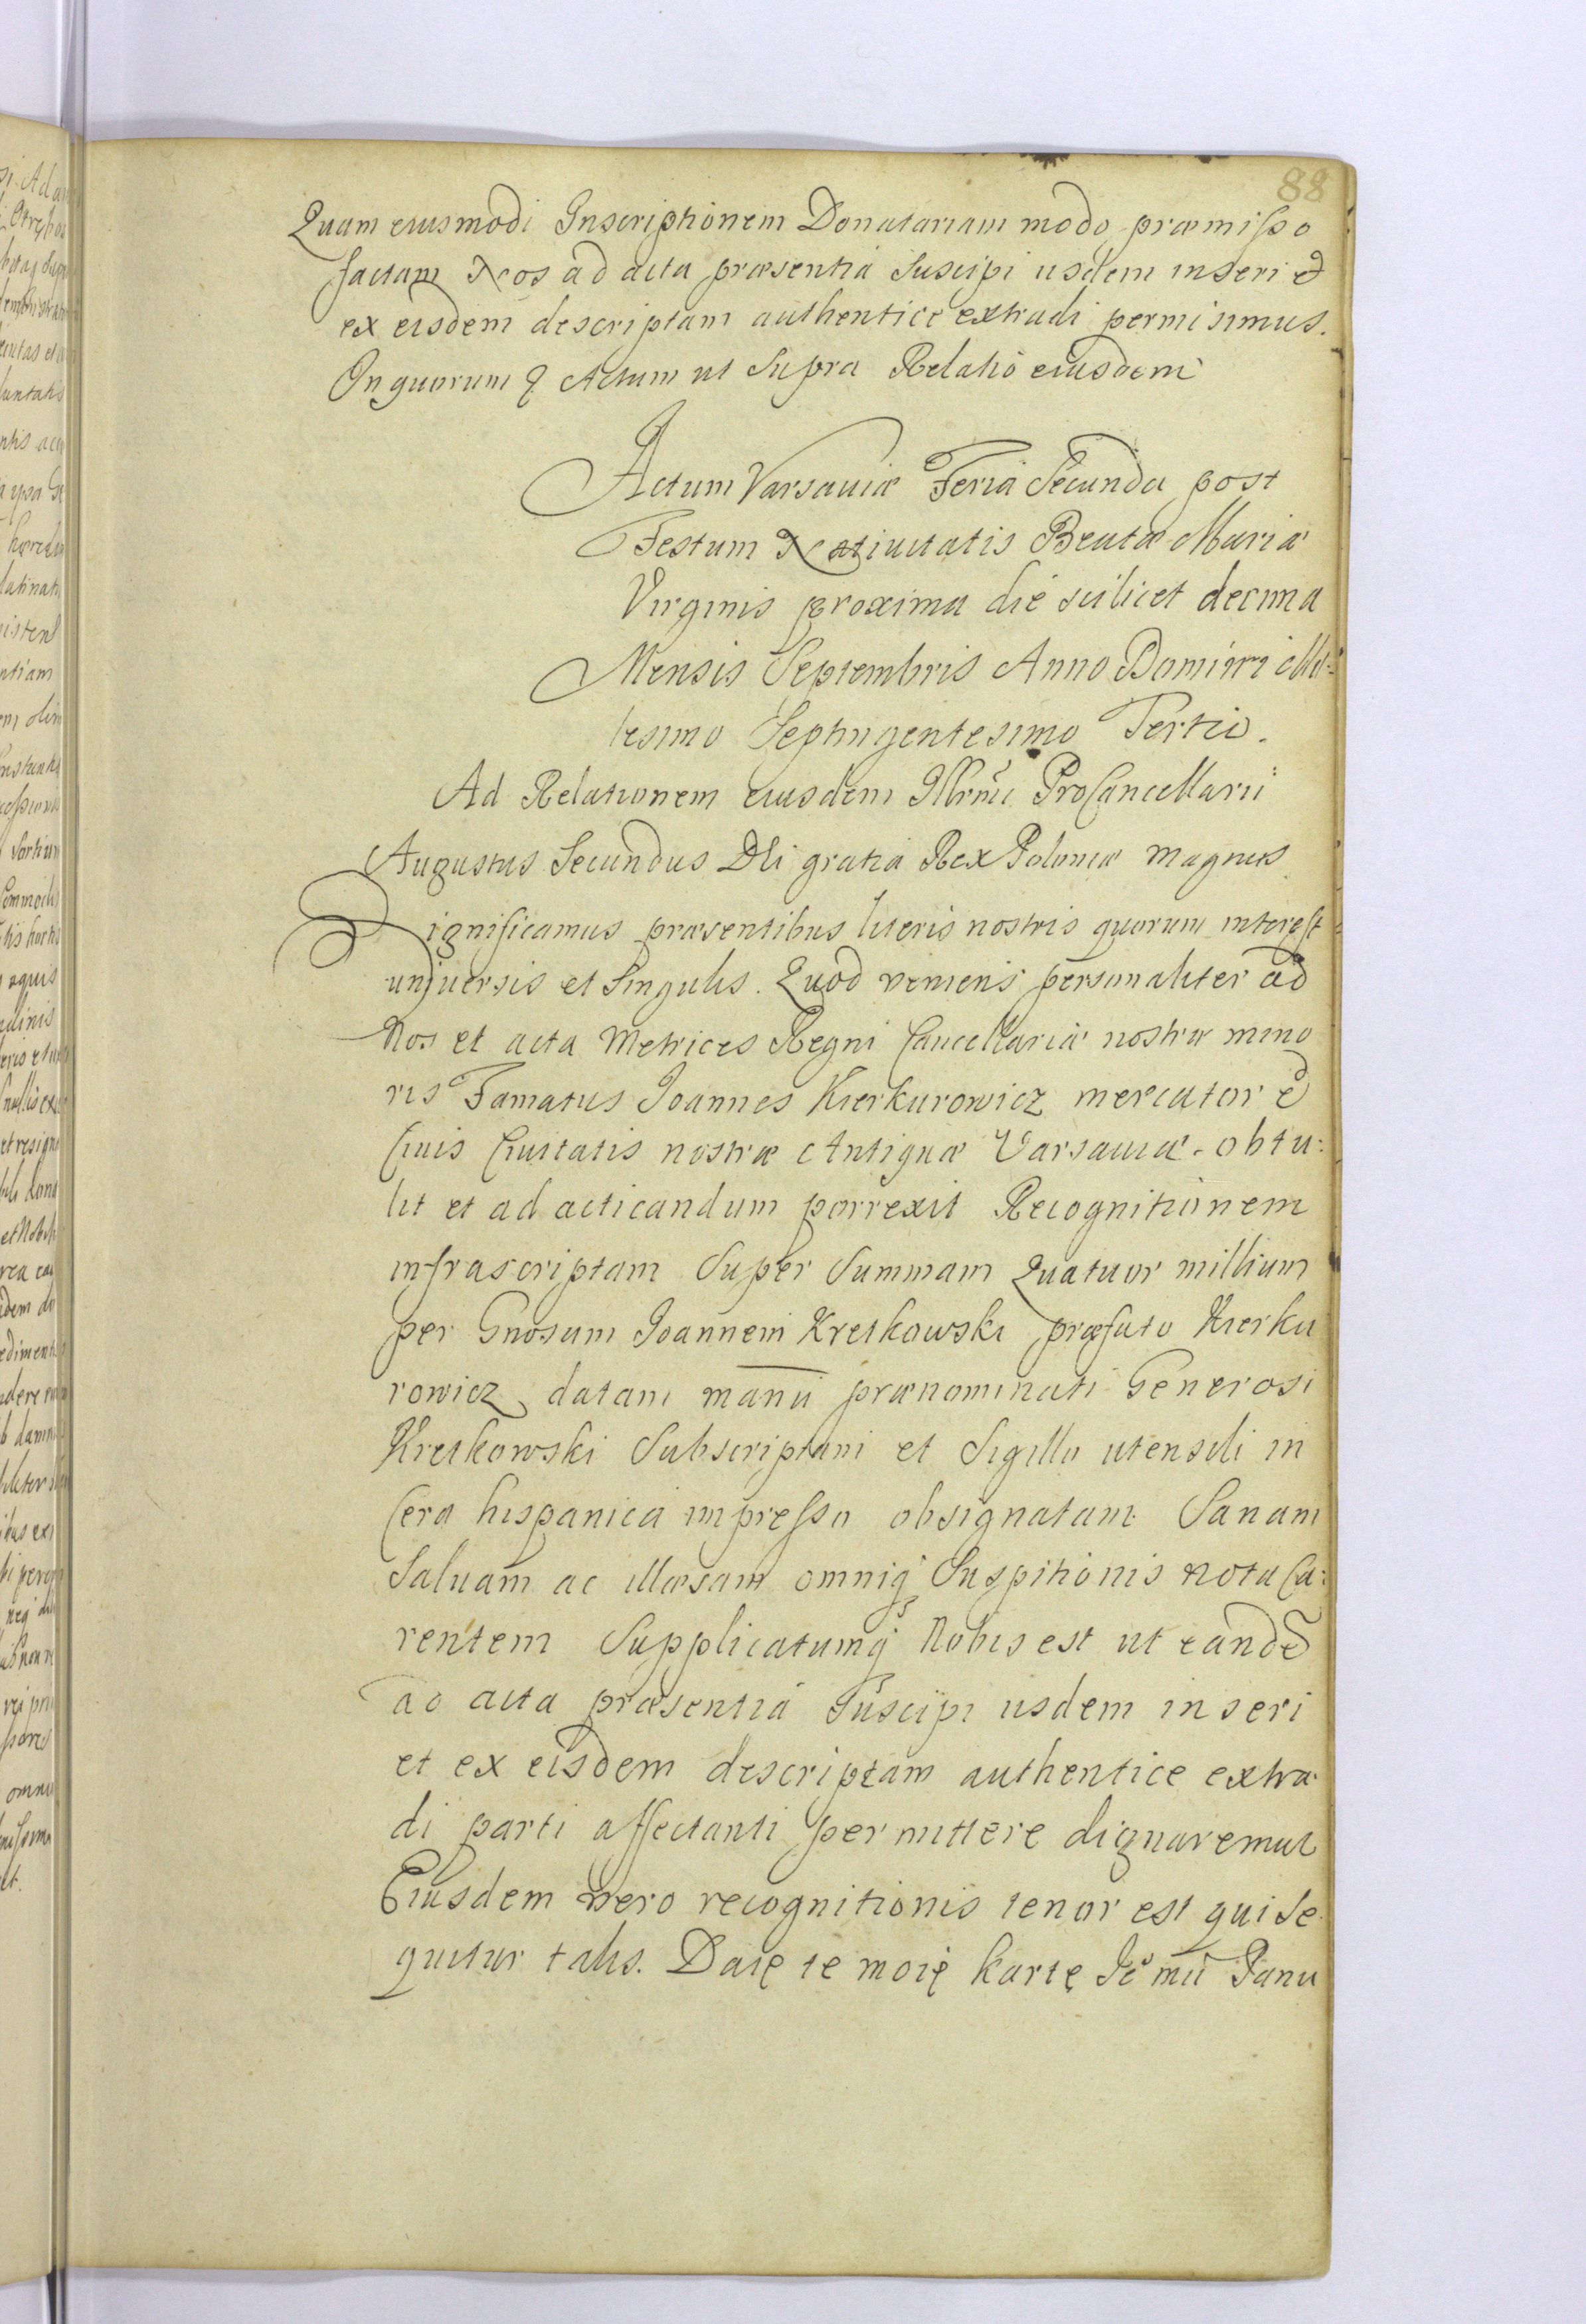 88
Quam eiusmodi Inscriptionem Donatariam modo præmisso
factam Nos ad acta præsentia suscipi iisdem inseri et
ex eisdem descriptam authentice extradi permisimus.
In quorum Actum ut supra Relatio eiusdem
Actum Varsaviæ Feria Secunda post
Festum Natiuitatis Beatæ Mariæ
Virginis proxima die scilicet decima
Mensis Septembris Anno Domini Mil-
lesimo Septingentesimo Tertio.
Ad Relationem eiusdem Illrmi ProCancellarii
Augustus Secundus Dei gratia Rex Poloniæ magnus
Significamus præsentibus literis nostris quorum interest
uniuersis et singulis. Quod veniens personaliter ad
Nos et acta Metrices Regni Cancellariæ nostræ mino
ris Famatus Joannes Kierkurowicz mercator et
Ciuis Ciuitatis nostræ Antiquæ Varsauiæ obtu:
lit et ad acticandum porrexit Recognitionem
infrascriptam super summam Quatuor millium
per Gnosum Joannem Kretkowski præfato Kierku
rowicz datam manu prænominati Generosi
Kretkowski subscriptam et sigillo utensili in
Cera hispanica impresso obsignatam. Sanam
saluam ac illæsam omniq suspitionis nota Ca:
rentem supplicatumq Nobis est ut eande
ad acta præsentia suscipi iisdem inseri
et ex eisdem descriptam authentice extra
di parti affectanti permittere dignaremur
Eiusdem vero recognitionis tenor est qui se
quitur talis. Daię te moię kartę Je mu Panu